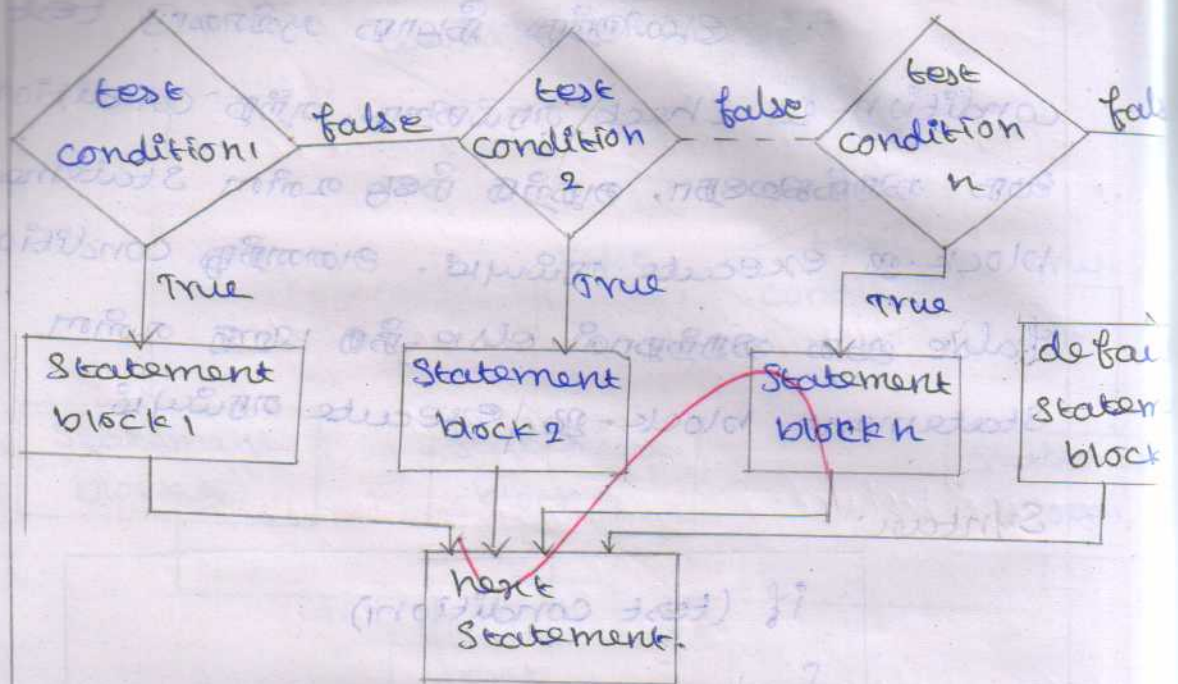 test
condition1
false
test
condition
2
false
test
condition
n
fals
True
True
True
Statement
block1
Statement
block2
Statement
block n
defau
Statem
block
next
Statement.